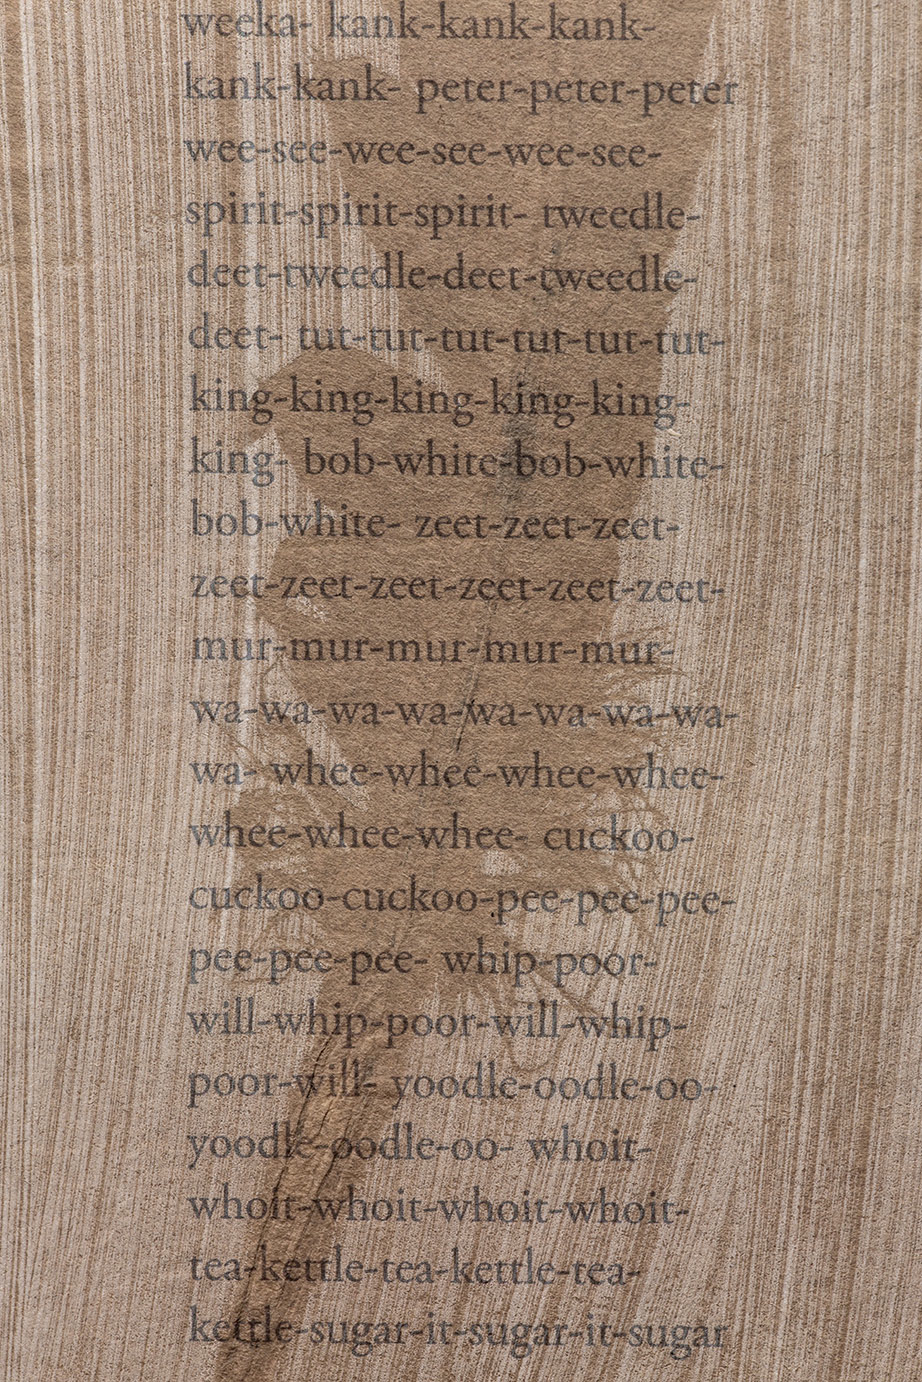 weeka- kank-kank-kank-
kank-kank- peter-peter-peter
wee-see-wee-see-wee-see-
spirit-spirit-spirit- tweedle-
deet-tweedle-deet-tweedle-
deet- tut-tut-tut-tut-tut-tut-
king-king-king-king-king-
king- bob-white-bob-white-
bob-white- zeet-zeet-zeet-
zeet-zeet-zeet-zeet-zeet-zeet-
mur-mur-mur-mur-mur-
wa-wa-wa-wa-wa-wa-wa-wa-
wa- whee-whee-whee-whee-
whee-whee-whee- cuckoo-
cuckoo-cuckoo-pee-pee-pee-
pee-pee-pee- whip-poor-
will-whip-poor-will-whip-
poor-will- yoodle-oodle-oo-
yoodle-oodle-oo- whoit-
whoit-whoit-whoit-whoit-
tea-kettle-tea-kettle-tea-
kettle-sugar-it-sugar-it-sugar